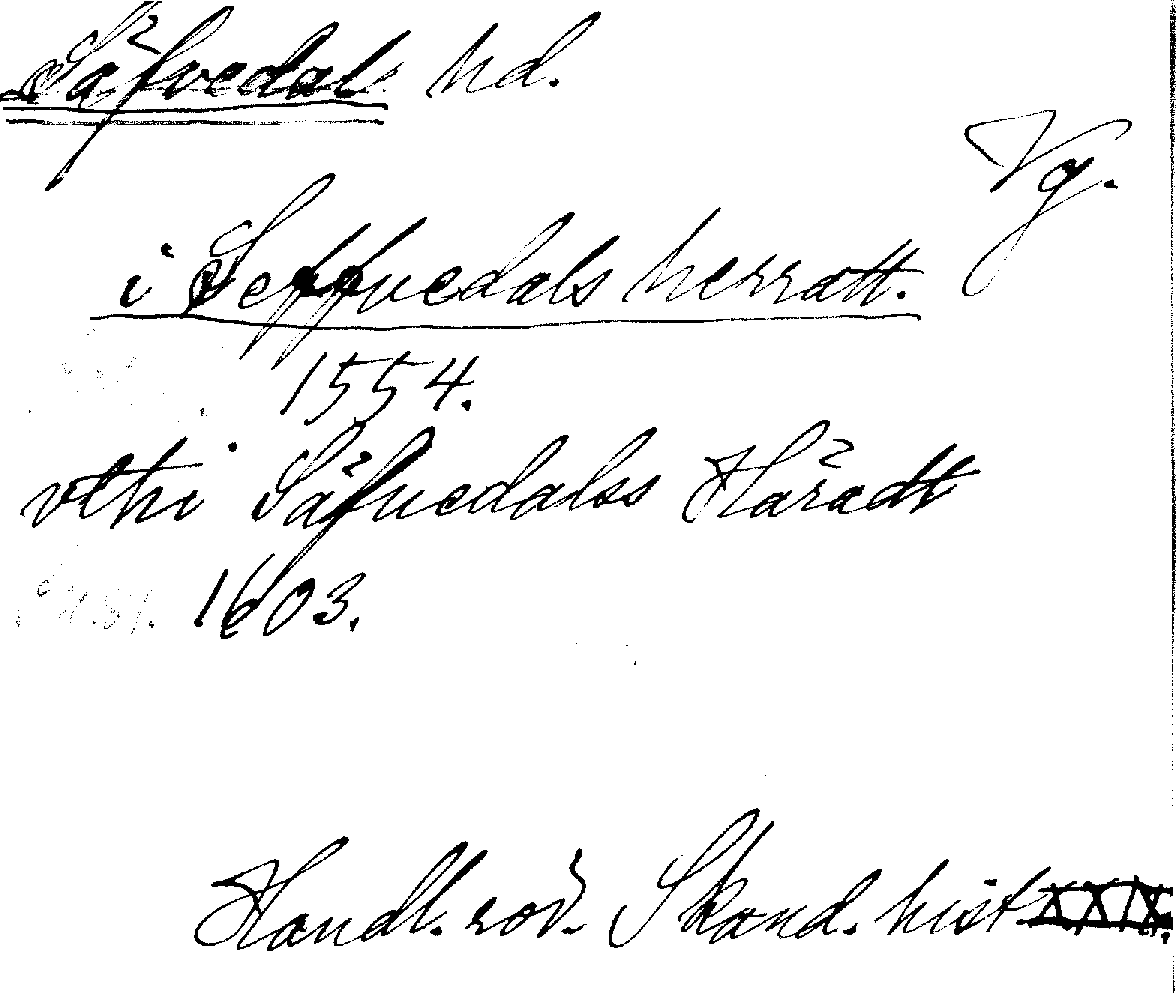 Säfvedals hd.
Vg.
i Seffuedals herratt.
1554.
vthi Säfuedalss Häradt
1603.
Handl. röd. Skand. hist. XXIX.